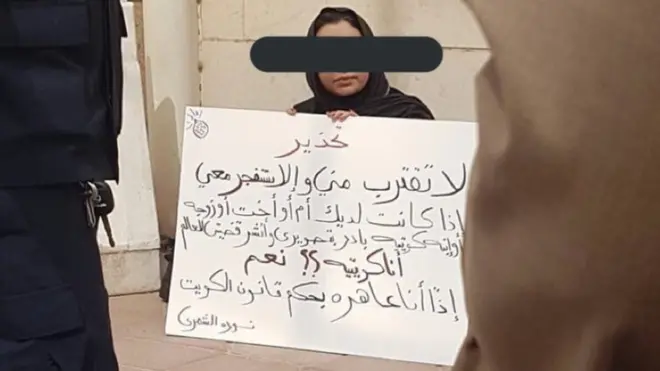 تحذير
لا تقترب مني وإلا ستنفجر معي
إذا كانت لديك أم أو أخت أو زوجه
أو إبنه كويتيه بادر بتصويري وأنشر قضيتي للعالم
أنا كويتيه ؟؟ نعم
إذًا أنا عاهره بحكم قانون الكويت
نوره الشمري